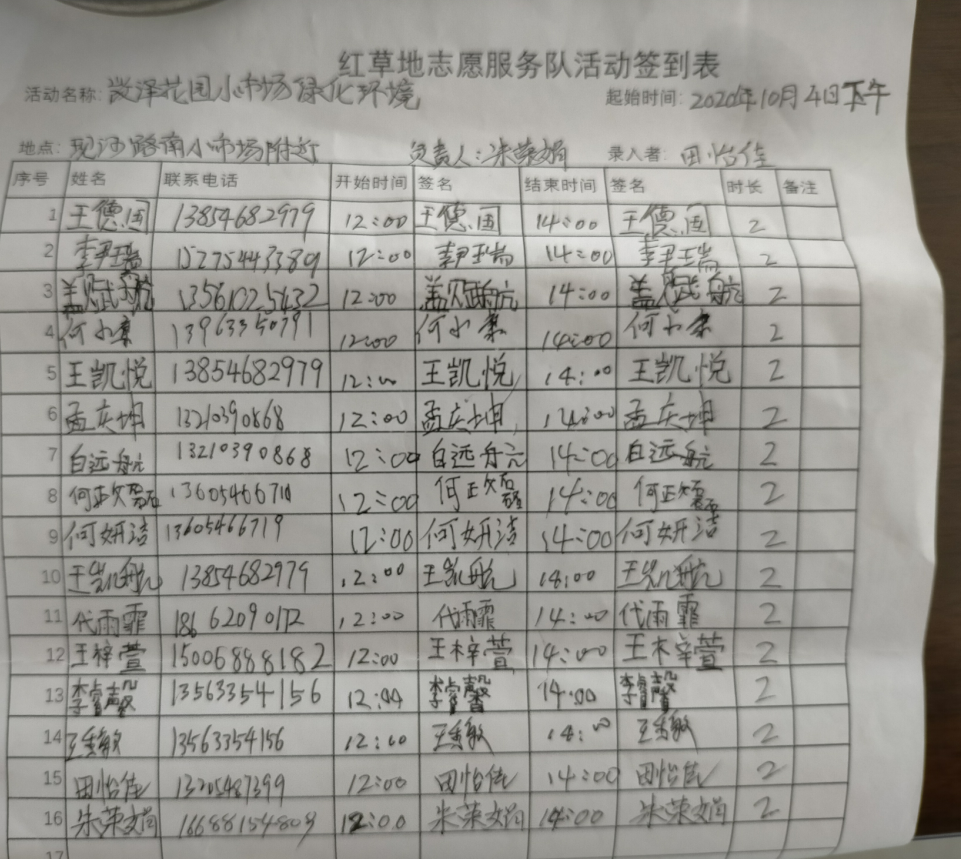 红草地志愿服务队活动签到表
活动名称: 泽花园小市场绿化环境 起始时间: 2020年10月4日下午
地点: 现河路南小市场附近 负责人: 朱荣娟 录入者: 田怡佳
序号 姓名 联系电话 开始时间 签名 结束时间 签名 时长 备注
1 王德国 13854682979 12:00 王德国 14:00 王德国 2
2 李尹瑞 15275443389 12:00 李尹瑞 14:00 李尹瑞 2
3 盖 航 13561025632 12:00 盖 航 14:00 盖 航 2
4 何小柔 13963350791 12:00 何小柔 14:00 何小柔 2
5 王凯悦 13854682979 12:00 王凯悦 14:00 王凯悦 2
6 孟庆坤 1321390868 12:00 孟庆坤 14:00 孟庆坤 2
7 白远航 13210390868 12:00 白远航 14:00 白远航 2
8 何正欣磊 12:00 何正欣磊 14:00 何正欣磊 2
9 何妍洁 13605466719 12:00 何妍洁 14:00 何妍洁 2
10 王凯航 13854682979 12:00 王凯航 14:00 王凯航 2
11 代雨霏 18662090172 12:00 代雨霏 14:00 代雨霏 2
12 王梓萱 15006888182 12:00 王梓萱 14:00 王梓萱 2
13 李睿馨 13563354156 12:00 李睿馨 14:00 李睿馨 2
14 王秀敏 13563354156 12:00 王秀敏 14:00 王秀敏 2
15 田怡佳 13205487399 12:00 田怡佳 14:00 田怡佳 2
16 朱荣娟 16688154809 12:00 朱荣娟 14:00 朱荣娟 2
17